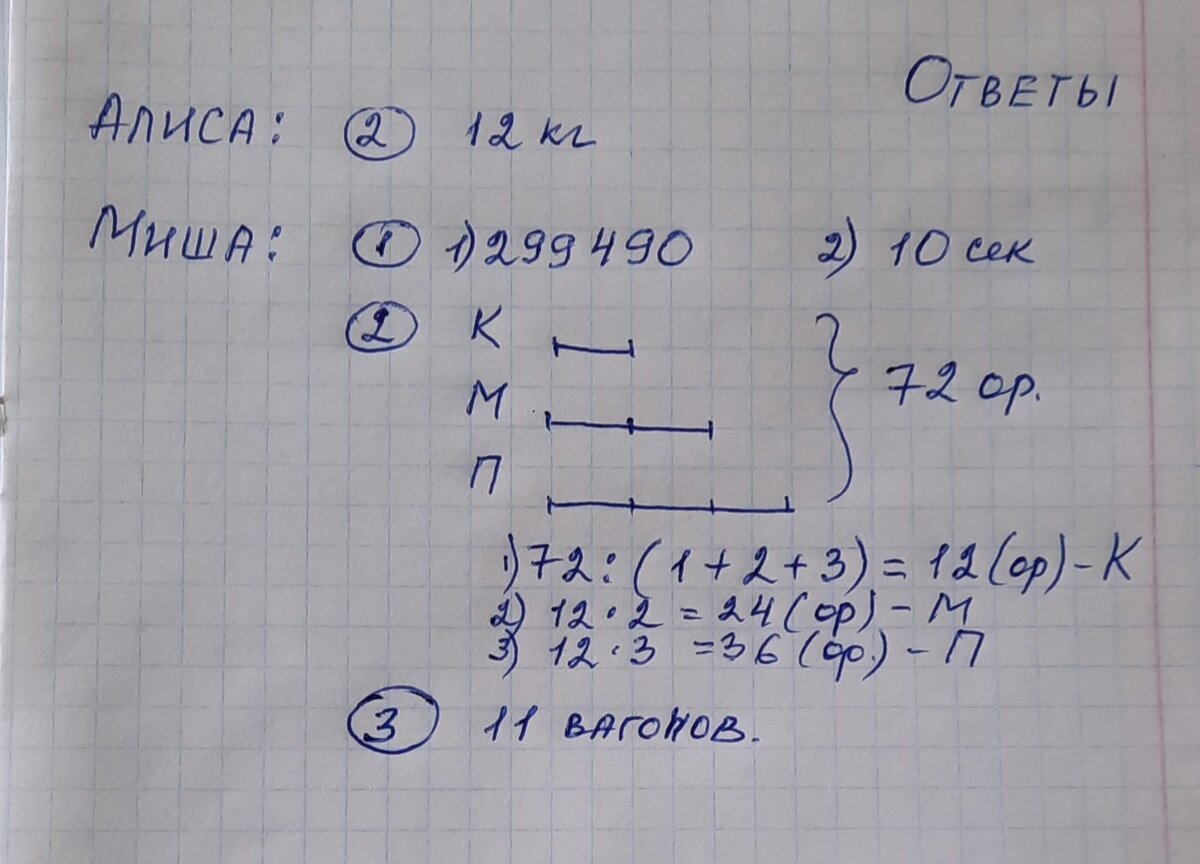 Ответы
Алиса: ② 12 кг
Миша: ① 1) 299490 2) 10 сек
② К
М
П
72 ор.
1) 72 : (1 + 2 + 3) = 12 (ор) – К
2) 12 · 2 = 24 (ор) – М
3) 12 · 3 = 36 (ор.) – П
③ 11 вагонов.